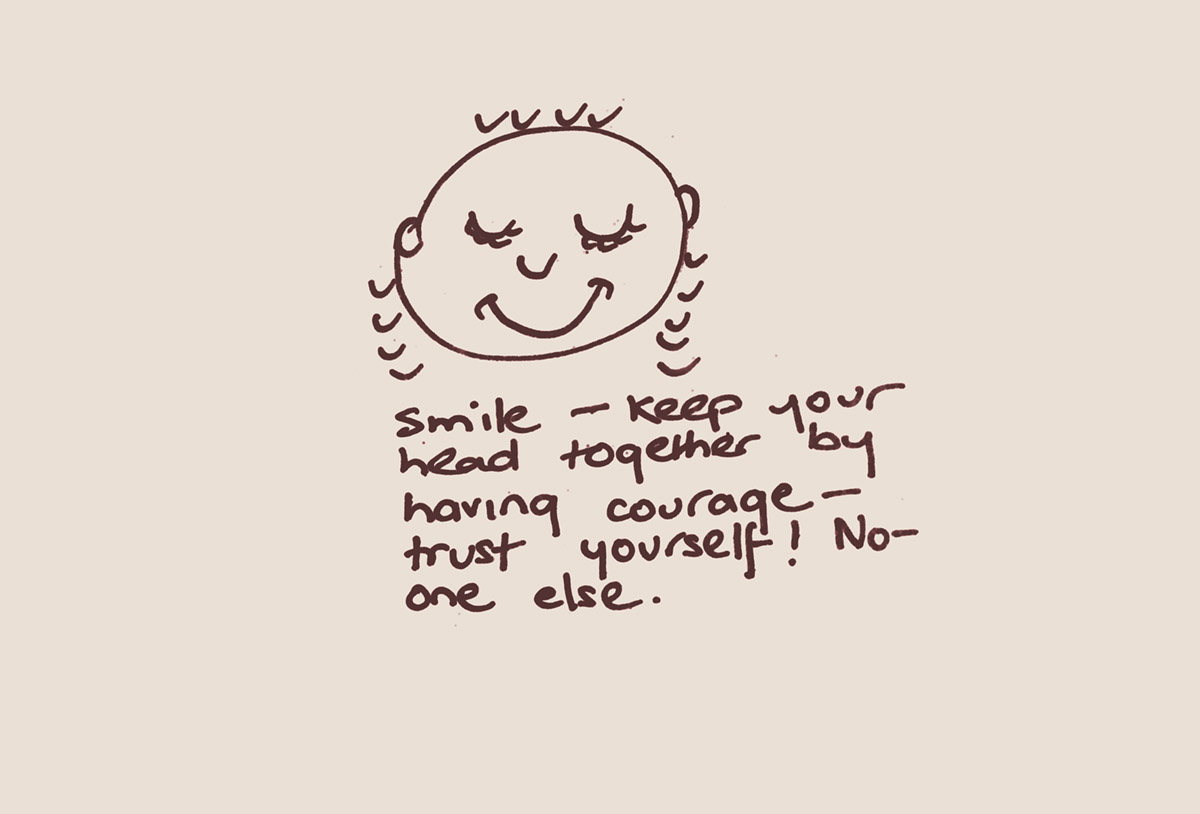 smile – keep your
head together by
having courage –
trust yourself! No-
one else.